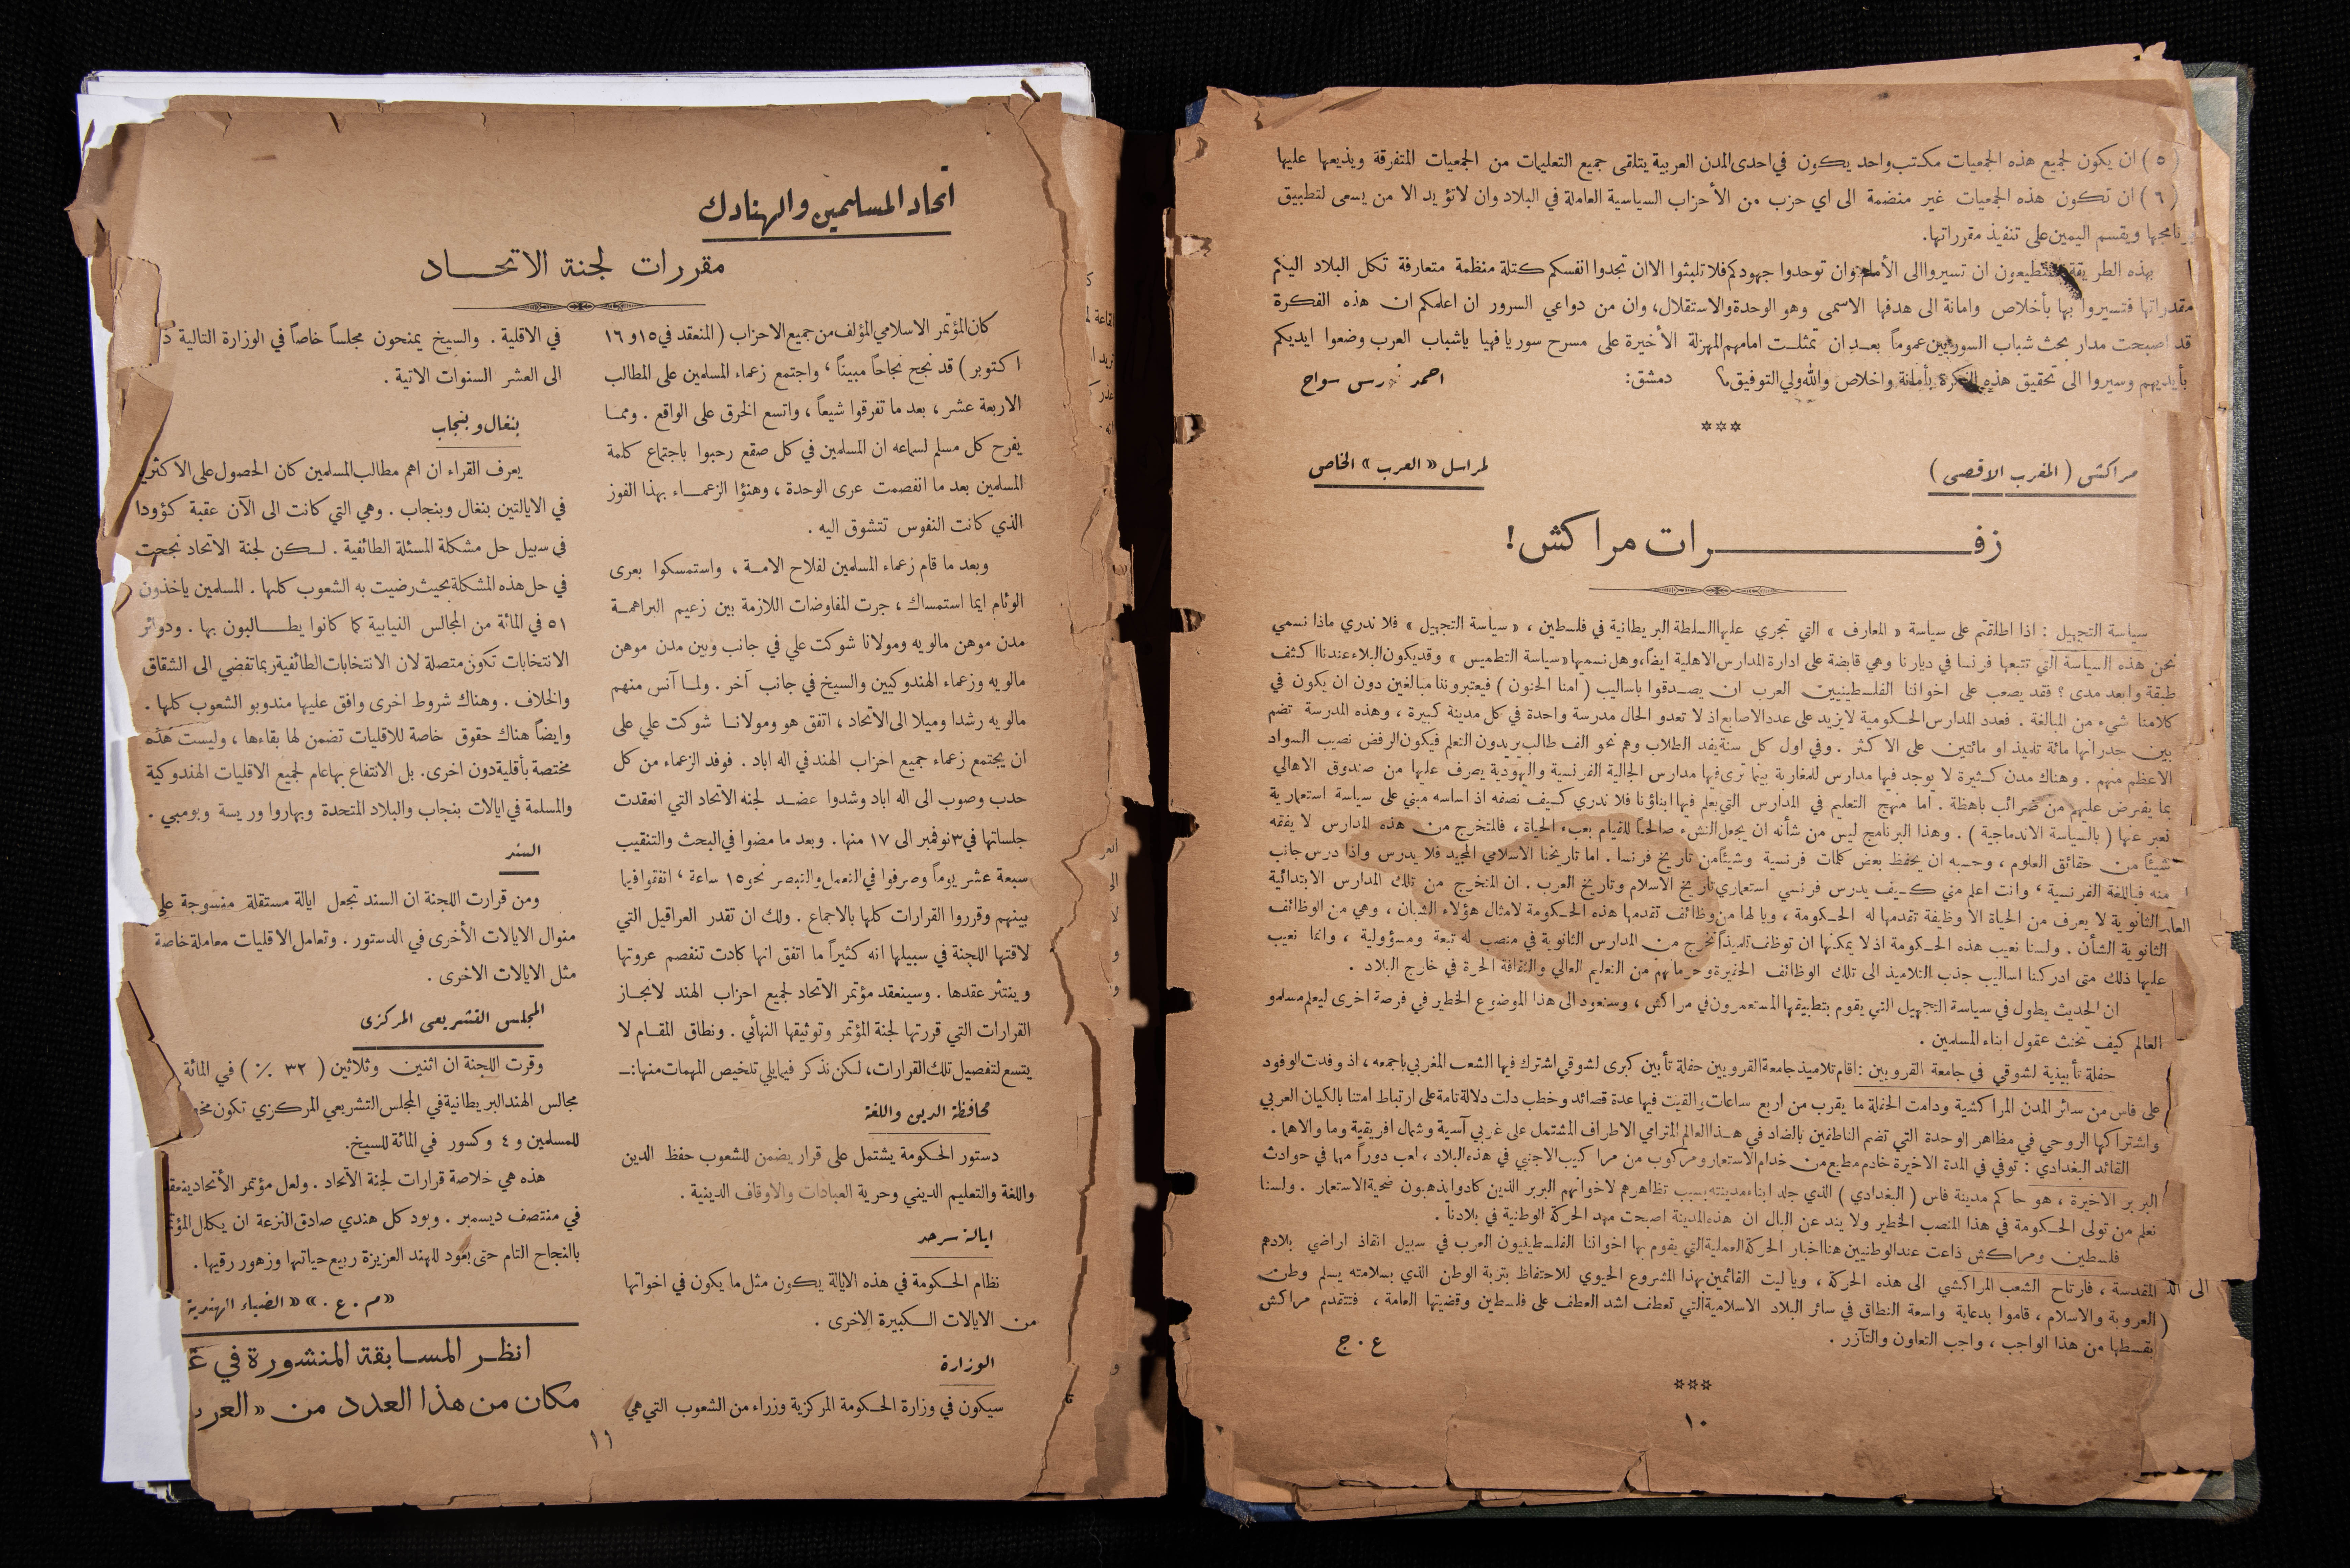 (٥) ان يكون لجميع هذه الجمعيات مكتب واحد يكون في احدى المدن العربية يتلقى جميع التعليمات من الجمعيات المتفرقة ويذيعها عليها
(٦) ان تكون هذه الجمعيات غير منضمة الى اي حزب من الأحزاب السياسية العاملة في البلاد وان لا تؤيد الا من يسعى لتطبيق
برنامجها ويقسم اليمين على تنفيذ مقرراتها.
بهذه الطريقة تستطيعون ان تسيروا الى الأمام وان توحدوا جهودكم فلا تلبثوا الا ان تجدوا انفسكم كتلة منظمة متعارفة تكل البلاد اليكم
مقدراتها فتسيروا بها بأخلاص وامانة الى هدفها الاسمى وهو الوحدة والاستقلال، وان من دواعي السرور ان اعلمكم ان هذه الفكرة
قد اصبحت مدار بحث شباب السوريين عموماً بعد ان تمثلت امامهم المهزلة الأخيرة على مسرح سوريا فهيا ياشباب العرب وضعوا ايديكم
بأيديهم وسيروا الى تحقيق هذه الفكرة بأمانة واخلاص والله ولي التوفيق؟ دمشق: احمد سواح
***
مراكش (المغرب الاقصى) لمراسل «العرب» الخاص
زفرات مراكش!
سياسة التجهيل : اذا اطلقتم على سياسة « المعارف » التي تجري عليها السلطة البريطانية في فلسطين ، « سياسة التجهيل » فلا ندري ماذا نسمي
نحن هذه السياسة التي تتبعها فرنسا في ديارنا وهي قابضة على ادارة المدارس الاهلية ايضاً، وهل نسميها «سياسة التطميس » وقد يكون البلاء عندنا اكثف
طبقة وابعد مدى ؟ فقد يصعب على اخواننا الفلسطينيين العرب ان يصدقوا باساليب ( امنا الحنون ) فيعتبروننا مبالغين دون ان يكون في
كلامنا شيء من المبالغة . فعدد المدارس الحكومية لا يزيد على عدد الاصابع اذ لا تعدو الحال مدرسة واحدة في كل مدينة كبيرة ، وهذه المدرسة تضم
بين جدرانها مائة تلميذ او مائتين على الاكثر . وفي اول كل سنة يفد الطلاب وهم نحو الف طالب يريدون التعلم فيكون الرفض نصيب السواد
الاعظم منهم . وهناك مدن كثيرة لا يوجد فيها مدارس للمغاربة بينما ترى فيها مدارس الجالية الفرنسية واليهودية يصرف عليها من صندوق الاهالي
بما يفرض عليهم من ضرائب باهظة . اما منهج التعليم في المدارس التي يعلم فيها ابناؤنا فلا ندري كيف نصفه اذ اساسه مبني على سياسة استعمارية
نعبر عنها ( بالسياسة الاندماجية ) . وهذا البرنامج ليس من شأنه ان يجعل النشء صالحاً للقيام بعبء الحياة ، فالمتخرج من هذه المدارس لا يفقه
شيئاً من حقائق العلوم ، وحسبه ان يحفظ بعض كلمات فرنسية وشيئاً من تاريخ فرنسا . اما تاريخنا الاسلامي المجيد فلا يدرس واذا درس جانب
منه فباللغة الفرنسية ، وانت اعلم مني كيف يدرس فرنسي استعماري تاريخ الاسلام وتاريخ العرب . ان المتخرج من تلك المدارس الابتدائية
الثانوية لا يعرف من الحياة الا وظيفة تقدمها له الحكومة ، ويا لها من وظائف تقدمها هذه الحكومة لامثال هؤلاء الشبان ، وهي من الوظائف
الثانوية الشأن . ولسنا نعيب هذه الحكومة اذ لا يمكنها ان توظف تلميذاً تخرج من المدارس الثانوية في منصب له تبعة ومسؤولية ، وانما نعيب
عليها ذلك متى ادركنا اساليب جذب التلاميذ الى تلك الوظائف الحقيرة وحرمانهم من التعليم العالي والثقافة الحرة في خارج البلاد .
ان الحديث يطول في سياسة التجهيل التي يقوم بتطبيقها المستعمرون في مراكش ، وسنعود الى هذا الموضوع الخطير في فرصة اخرى ليعلم مسلمو
العالم كيف تخنث عقول ابناء المسلمين .
حفلة تأبينية لشوقي في جامعة القرويين : اقام تلاميذ جامعة القرويين حفلة تأبين كبرى لشوقي اشترك فيها الشعب المغربي باجمعه ، اذ وفدت الوفود
على فاس من سائر المدن المراكشية ودامت الحفلة ما يقرب من اربع ساعات والقيت فيها عدة قصائد وخطب دلت دلالة تامة على ارتباط امتنا بالكيان العربي
واشتراكها الروحي في مظاهر الوحدة التي تضم الناطقين بالضاد في هذا العالم المترامي الاطراف المشتمل على غربي آسية وشمال افريقية وما والاهما .
القائد البغدادي : توفي في المدة الاخيرة خادم مطيع من خدام الاستعمار ومركوب من مراكيب الاجنبي في هذه البلاد ، لعب دوراً مهما في حوادث
البربر الاخيرة ، هو حاكم مدينة فاس ( البغدادي ) الذي جلد ابناء مدينته بسبب تظاهرهم لاخوانهم البربر الذين كادوا يذهبون ضحية الاستعمار . ولسنا
نعلم من تولى الحكومة في هذا المنصب الخطير ولا يند عن البال ان هذه المدينة اصبحت مهد الحركة الوطنية في بلادنا .
فلسطين ومراكش ذاعت عند الوطنيين هنا اخبار الحركة العملية التي يقوم بها اخواننا الفلسطينيون العرب في سبيل انقاذ اراضي بلادهم
المقدسة ، فارتاح الشعب المراكشي الى هذه الحركة ، ويا ليت القائمين بهذا المشروع الحيوي للاحتفاظ بتربة الوطن الذي بسلامته يسلم وطن
العروبة والاسلام ، قاموا بدعاية واسعة النطاق في سائر البلاد الاسلامية التي تعطف اشد العطف على فلسطين وقضيتها العامة ، فتتقدم مراكش
بقسطها من هذا الواجب ، واجب التعاون والتآزر . ع . ج
***
١٠
اتحاد المسلمين والهنادك
مقررات لجنة الاتحاد
كان المؤتمر الاسلامي المؤلف من جميع الاحزاب ( المنعقد في ١٥ و ١٦
اكتوبر ) قد نجح نجاحاً مبيناً ، واجتمع زعماء المسلمين على المطالب
الاربعة عشر ، بعد ما تفرقوا شيعاً ، واتسع الخرق على الواقع . ومما
يفرح كل مسلم لسماعه ان المسلمين في كل صقع رحبوا باجتماع كلمة
المسلمين بعد ما انفصمت عرى الوحدة ، وهنؤا الزعماء بهذا الفوز
الذي كانت النفوس تتشوق اليه .
وبعد ما قام زعماء المسلمين لفلاح الامة ، واستمسكوا بعرى
الوئام ايما استمساك ، جرت المفاوضات اللازمة بين زعيم البراهمة
مدن موهن مالويه ومولانا شوكت علي في جانب وبين مدن موهن
مالويه وزعماء الهندوكيين والسيخ في جانب آخر . ولما آنس منهم
مالويه رشدا وميلا الى الاتحاد ، اتفق هو ومولانا شوكت علي على
ان يجتمع زعماء جميع احزاب الهند في اله اباد . فوفد الزعماء من كل
حدب وصوب الى اله اباد وشدوا عضد لجنة الاتحاد التي انعقدت
جلساتها في ٣ نوفمبر الى ١٧ منها . وبعد ما مضوا في البحث والتنقيب
سبعة عشر يوماً وصرفوا في التعمل والتبصر نحو ١٥ ساعة ، اتفقوا فيما
بينهم وقرروا القرارات كلها بالاجماع . ولك ان تقدر العراقيل التي
لاقتها اللجنة في سبيلها انه كثيراً ما اتفق انها كادت تنفصم عروتها
وينتثر عقدها . وسينعقد مؤتمر الاتحاد لجميع احزاب الهند لانجاز
القرارات التي قررتها لجنة المؤتمر وتوثيقها النهائي . ونطاق المقام لا
يتسع لتفصيل تلك القرارات، لكن نذكر فيما يلي تلخيص المهمات منها:ــ
محافظة الدين واللغة
دستور الحكومة يشتمل على قرار يضمن للشعوب حفظ الدين
واللغة والتعليم الديني وحرية العبادات والاوقاف الدينية .
ايالة سرحد
نظام الحكومة في هذه الايالة يكون مثل ما يكون في اخواتها
من الايالات الكبيرة الاخرى .
الوزارة
سيكون في وزارة الحكومة المركزية وزراء من الشعوب التي هي
في الاقلية . والسيخ يمنحون مجلساً خاصاً في الوزارة التالية
الى العشر السنوات الاتية .
بنغال وبنجاب
يعرف القراء ان اهم مطالب المسلمين كان الحصول على الاكثرية
في الايالتين بنغال وبنجاب . وهي التي كانت الى الآن عقبة كؤودا
في سبيل حل مشكلة المسئلة الطائفية . لكن لجنة الاتحاد نجحت
في حل هذه المشكلة بحيث رضيت به الشعوب كلها . المسلمين ياخذون
٥١ في المائة من المجالس النيابية كما كانوا يطالبون بها . ودوائر
الانتخابات تكون متصلة لان الانتخابات الطائفية ربما تفضي الى الشقاق
والخلاف . وهناك شروط اخرى وافق عليها مندوبو الشعوب كلها .
وايضاً هناك حقوق خاصة للاقليات تضمن لها بقاءها ، وليست هذه
مختصة بأقلية دون اخرى. بل الانتفاع بها عام لجميع الاقليات الهندوكية
والمسلمة في ايالات بنجاب والبلاد المتحدة وبهار واوريسة وبومبي .
السند
ومن قرارت اللجنة ان السند تجعل ايالة مستقلة منسوجة على
منوال الايالات الأخرى في الدستور . وتعامل الاقليات معاملة خاصة
مثل الايالات الاخرى .
المجلس التشريعى المركزى
وقرت اللجنة ان اثنين وثلاثين ( ٣٢ ٪ ) في المائة
مجالس الهند البريطانية في المجلس التشريعي المركزي تكون
للمسلمين و ٤ وكسور في المائة للسيخ.
هذه هي خلاصة قرارات لجنة الاتحاد . ولعل مؤتمر الأتحاد ينعقد
في منتصف ديسمبر . وبود كل هندي صادق النزعة ان يكلل المؤتمر
بالنجاح التام حتى يعود للهند العزيزة ربيع حياتها وزهور رقيها .
«م . ع .» «الضياء الهندية
انظر المسابقة المنشورة في
مكان من هذا العدد من «العرب
١١